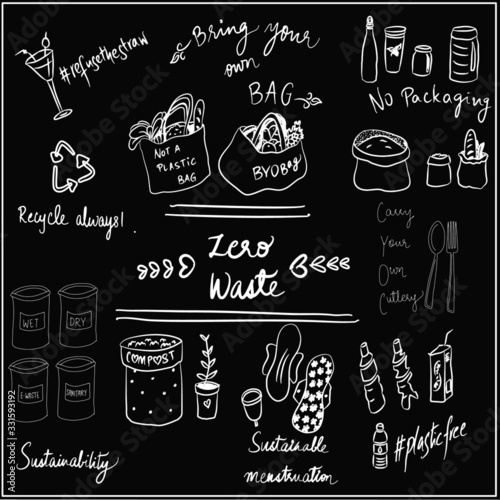 #refusethestraw
Bring your
own
BAG
No Packaging
NOT A
PLASTIC
BAG
BYOBag
Recycle always!
Zero
Waste
Carry
Your
Own
Cutlery
WET
DRY
E-WASTE
SANITARY
COMPOST
Sustainability
Sustainable
menstruation
#plasticfree
Adobe Stock | #331593192
Adobe Stock